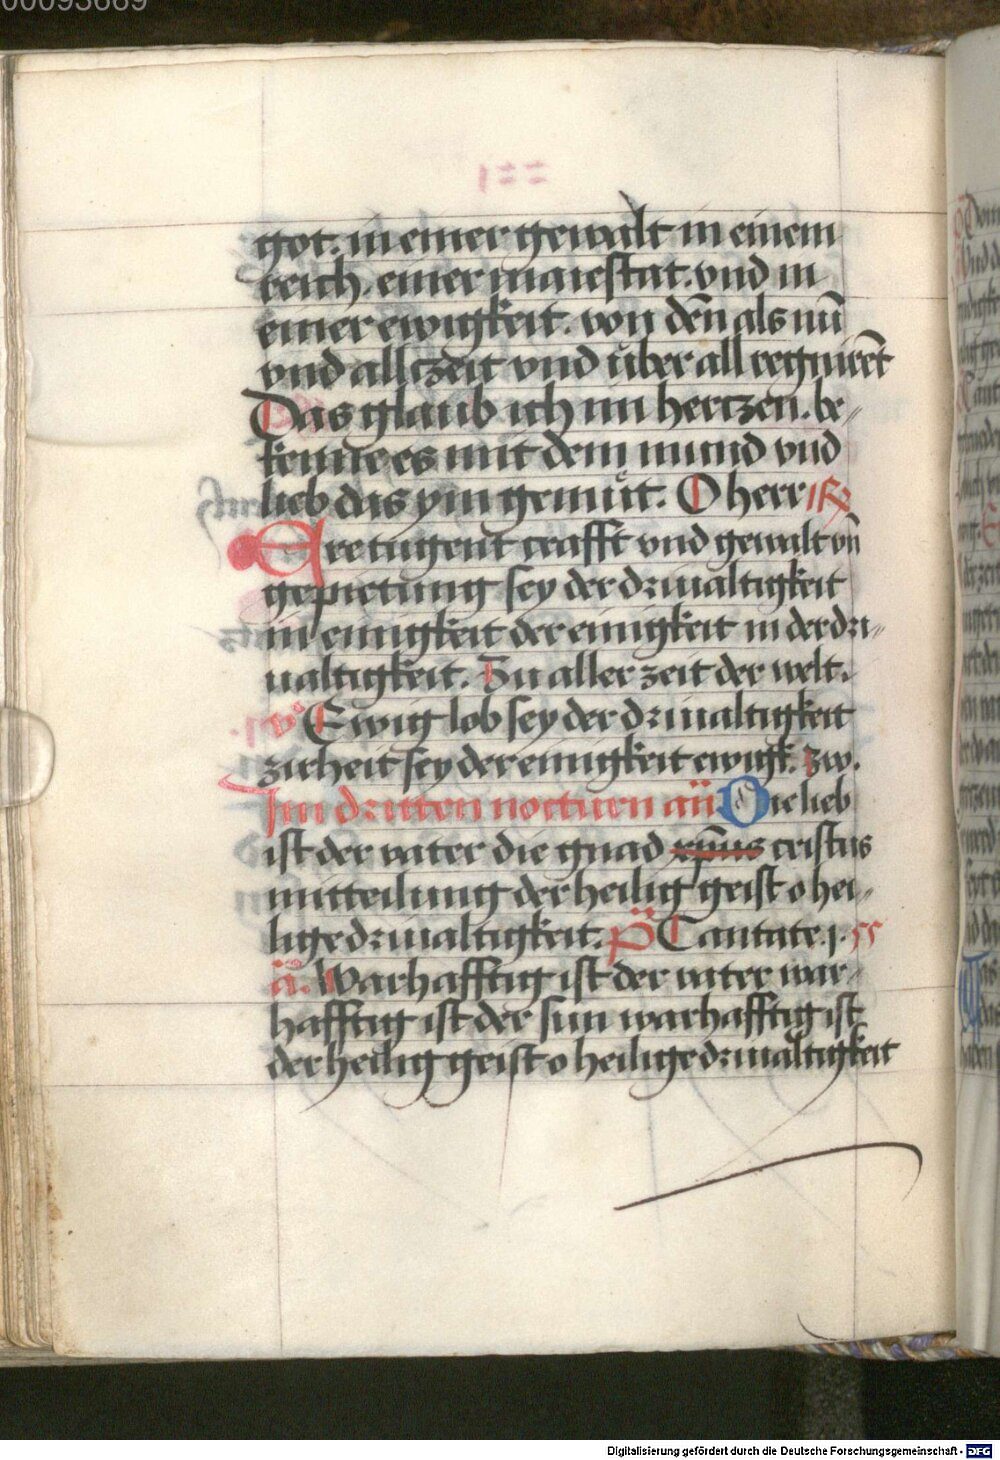 00093669
got. in einer gewalt in einem
reich. einer maiestat. vnd in
einer ewigkeit. von dēn als nū
vnd allczeit vnd über all regnirēt
Das glaub ich im hertzen. be⸗
kenne es mit dem mund vnd
lieb das ym gemüt. O herr ℟
Ere tugent crafft vnd gewalt vn̄
gepietung sey der driualtigkeit
in einigkeit der einigkeit in der dri⸗
ualtigkeit. Zu aller zeit der welt.
v° Ewig lob sey der driualtigkeit
zirheit sey der einigkeit ewigk. Zw.
Im dritten nocturn añ Die lieb
ist der vater die gnad xp̄us cristus
mitteilung der heilig geist o hei⸗
lige driualtigkeit. p̄s Cantate. j.
a. Warhafftig ist der vater war⸗
hafftig ist der sun warhafftig ist
der heilig geist o heilige driualtigkeit
Digitalisierung gefördert durch die Deutsche Forschungsgemeinschaft - DFG